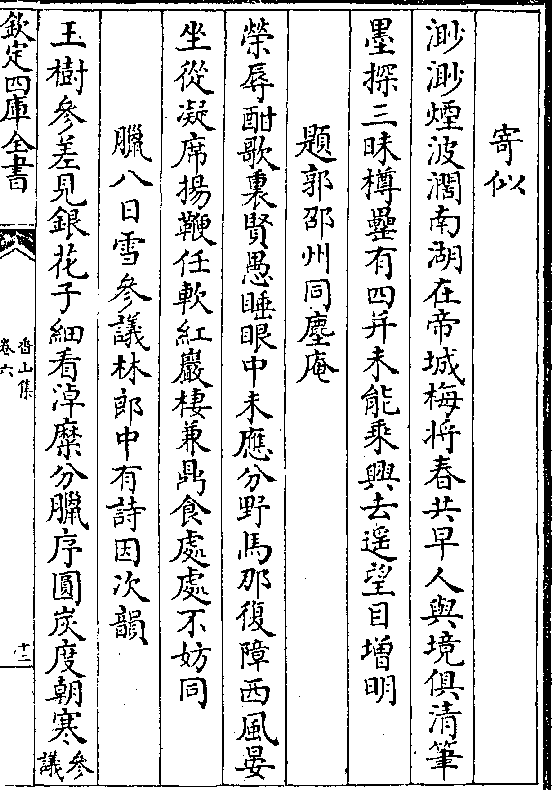 寄似
渺渺煙波濶南湖在帝城梅將春共早人與境俱清筆
墨探三昧樽罍有四并未能乘興去遥望目增明
題郭邵州同塵庵
榮辱酣歌裏賢愚睡眼中未應分野馬那復障西風晏
坐從凝席揚鞭任軟紅巖棲兼鼎食處處不妨同
臘八日雪參議林郎中有詩因次韻
玉樹參差見銀花子細看淖糜分臘序圓炭度朝寒參議
欽定四庫全書
香山集
卷六
十二